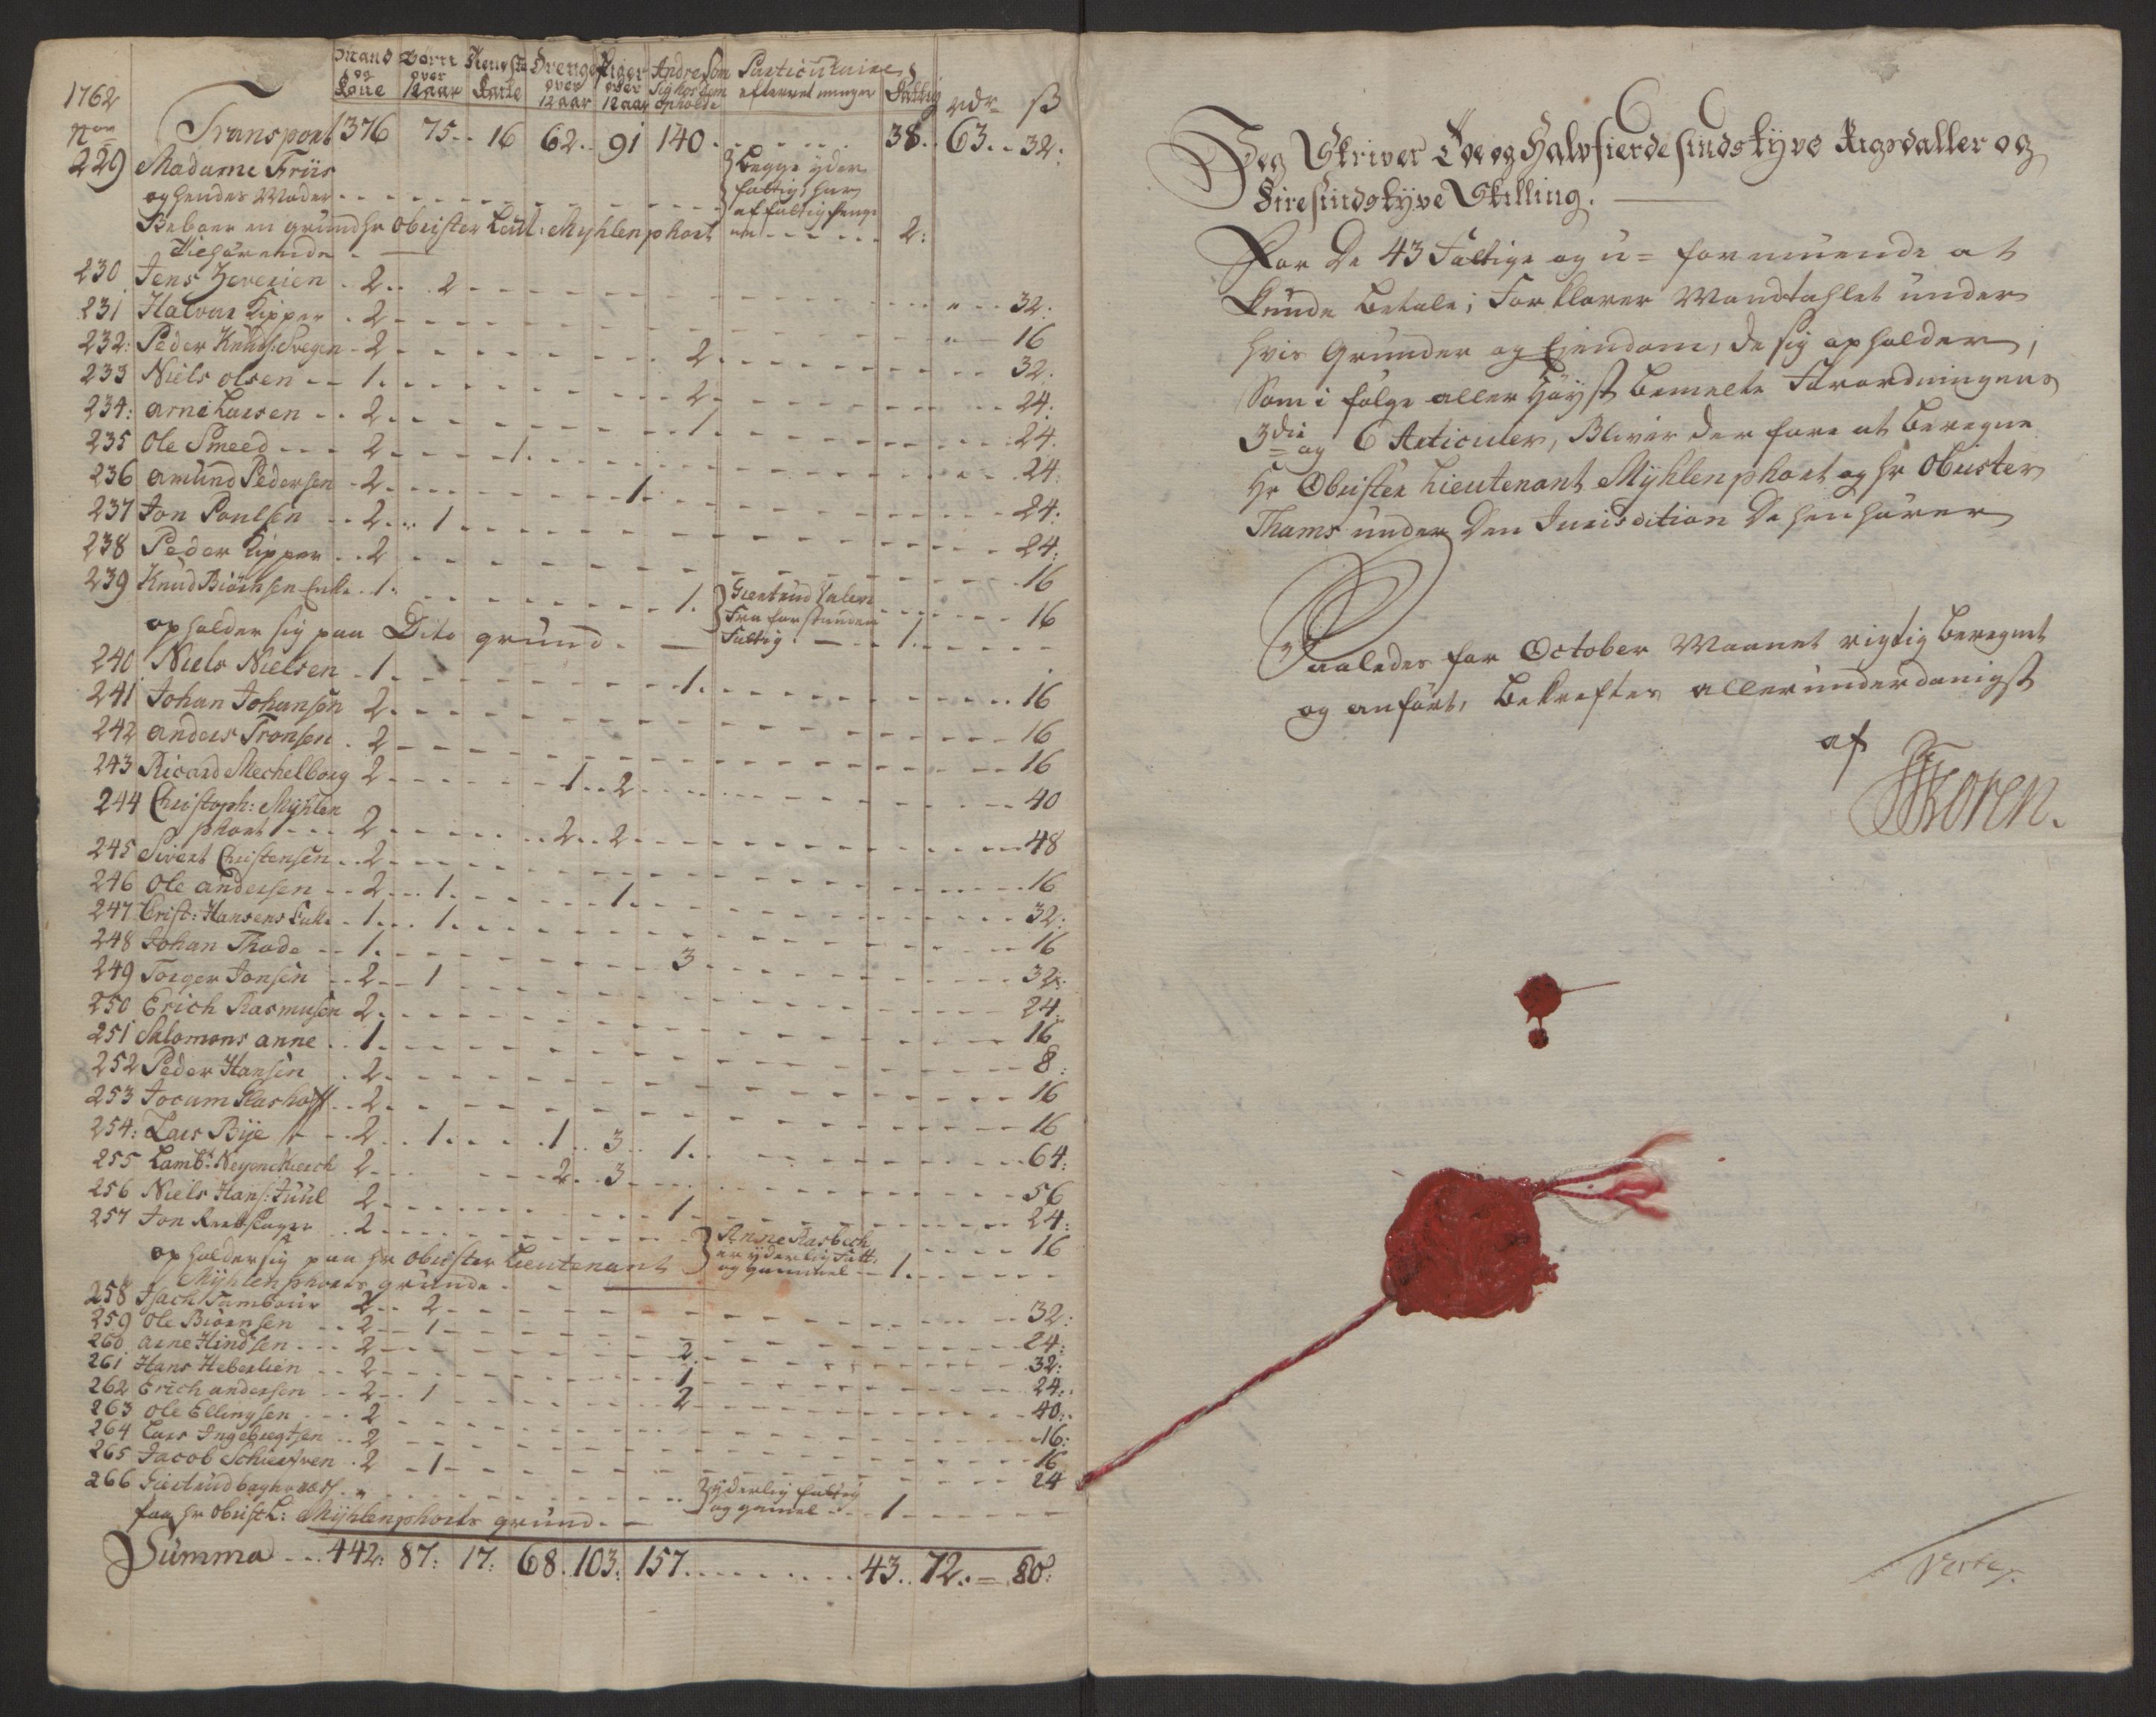 1762
Nov
Mand og Kone | Børn over 12 aar | Karle | Drenge over 12 aar | Piger over 12 aar | Andre som sig hos dem opholde | Particulaire efterretninger | Fattig | rdr | ß
Transport 376 75 16 62 91 140 38 63 32
229 Madame Friis
og hendes Moder } begge yder fattig, har af fattig penge
Beboer en grund hr Obrister Leut: Myhlenphort 2:
Tilhørende
230 Jens Zeverien 2 2 " 32
231 Halvor Kipper 2 " 16
232: Peder Knuds: Svegen 2 2 32
233 Niels olsen 1 2 24
234: arne Larsen 2 1 24
235 Ole Smeed 2 1 24
236 amund Pedersen 2 1 24
237 Jon Poulsen 2 1 24
238 Peder Kipper 2 16
239 Knud Biørnsen Enke 1 1 16
} Giertrud Fra forstanden Fattig 1
opholder sig paa Dito grund
240 Niels Nielsen 1 1 16
241 Johan Johansøn 2 16
242 anders Tronsen 2 16
243 Ricard Mechelborg 2 1 2 40
244 Christoph: Myhlen
phort 2 2 2 48
245 Sivert Christensen 2 16
246 Ole andersen 2 1 1 32
247 Crist: Hansens Enke 1 1 16
248 Johan Thode 1 3 32
249 Torger Jonsen 2 1 24
250 Erich Rasmusen 2 16
251 Salomons anne 1 8
252 Peder Hansen 2 16
253 Jocum 2 16
254: Lars Bije 2 1 1 3 1 64
255 Lamb: 2 2 3 56
256 Niels Hans: Juul 2 1 24
257 Jon 2 16
} Anne er yderlig Fatt: og gammel 1
opholder sig paa hr Obrister Lieutenant
Myhlenphorts grunde
258 Isach Tambour 2 2 32
259 Ole Biørnsen 2 1 24
260 arne Hindsen 2 2 32
261 Hans Heberlien 2 1 24
262 Erich andersen 2 1 2 40
263 Ole Ellingsen 2 16
264 Lars Ingebregtsen 2 16
265 Jacob 2 1 24
266 Giertrud
} yderlig fattig og gamel 1
paa hr Obrist L: Myhlenphorts grund
Summa 442: 87: 17: 68. 103. 157 43. 72. 80:
Jeg Skriver Toe og Halvfierdesindstyve Rigsdaller og
Firesindstyve Skilling.
For De 43 Fattige og u=formuende at
kunde betale; Forklarer Mandtahlet under
hvis Grunder og Eiendom, de sig opholder,
Som i følge aller Høyst bemelte Forordningens
3die og 6 Articuler, Bliver derfore at beregne
Hr Obrister Lieutenant Myhlenphort og hr Obrister
Thams under Den Jurisdition de henhører
Saaledes for October Maanet rigtig beregnet
og anført, bekræftes allerunderdanigst
af
Koren.